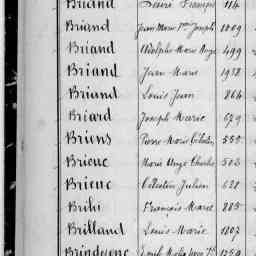 Briand Louis François 114
Briand Jean Marie Joseph 1009
Briand Adolphe Marie Ange 499
Briand Jean Marie 1938
Briand Louis Jean 864
Briard Joseph Marie 679
Briens Pierre Marie Célestin 555
Brieuc Marie Ange Charles 502
Brieuc Célestin Julien 628
Brihi François Marie 285
Brilland Louis Marie 1807
Émile 1250